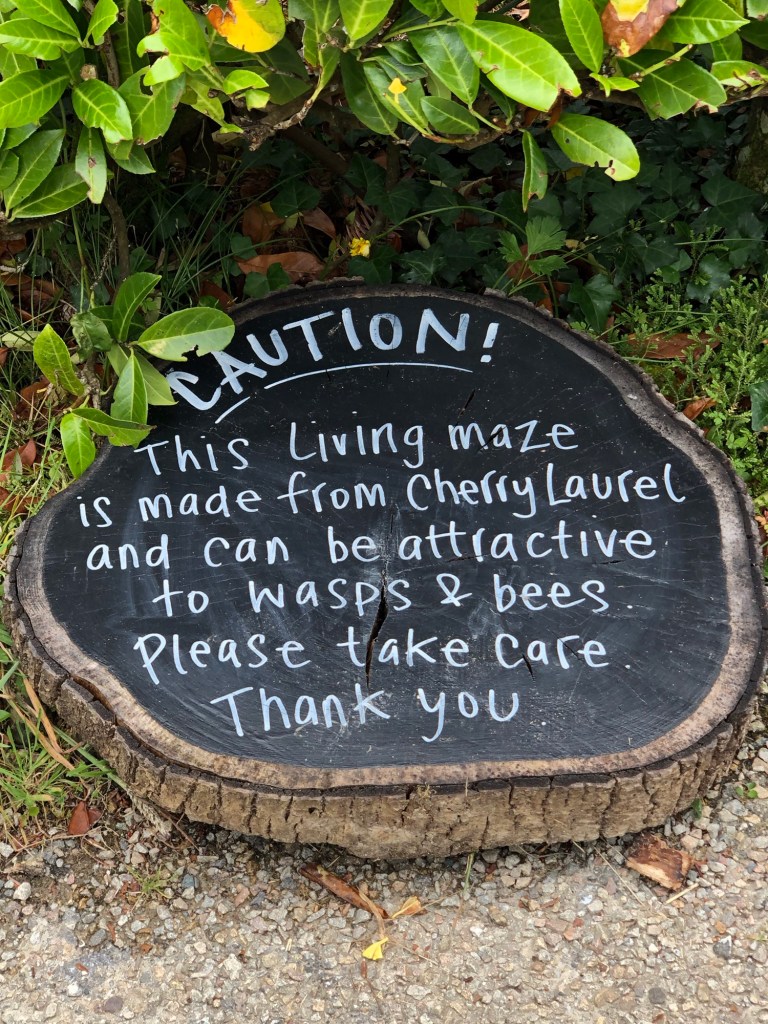 CAUTION!
This Living maze
is made from Cherry Laurel
and can be attractive
to wasps & bees.
Please take care
Thank you